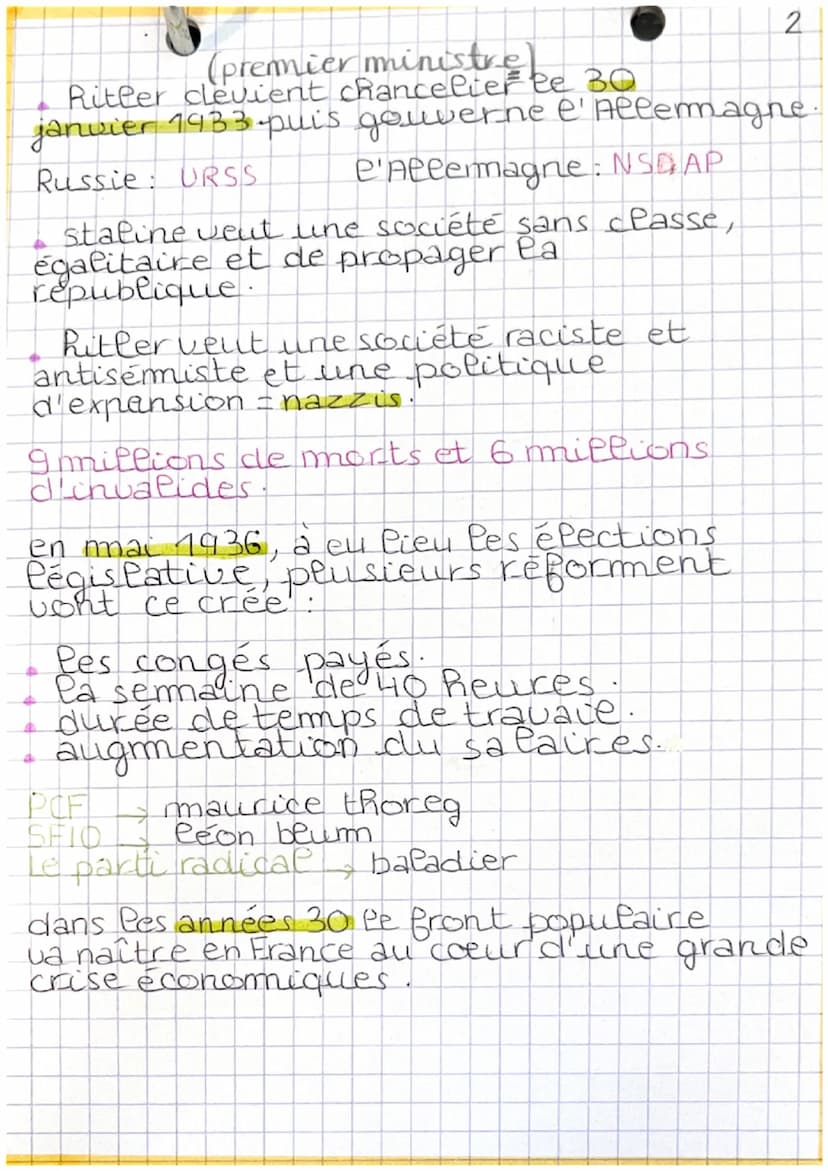 2
(premier ministre)
• Hitler devient chancelier le 30
janvier 1933 puis gouverne l'Allemagne.
Russie : URSS l'Allemagne : NSDAP
• staline veut une société sans classe,
égalitaire et de propager la
république.
• hitler veut une société raciste et
antisémiste et une politique
d'expansion = nazzis.
9 millions de morts et 6 millions
d'invalides.
en mai 1936, à eu lieu les élections
législative, plusieurs réforment
vont ce crée :
• les congés payés.
• la semaine de 40 heures.
• durée de temps de travaie.
• augmentation du salaires.
PCF → maurice thoreg
SFIO → léon blum
Le parti radical → baladier
dans les années 30 le front populaire
va naître en France au coeur d'une grande
crise économiques.